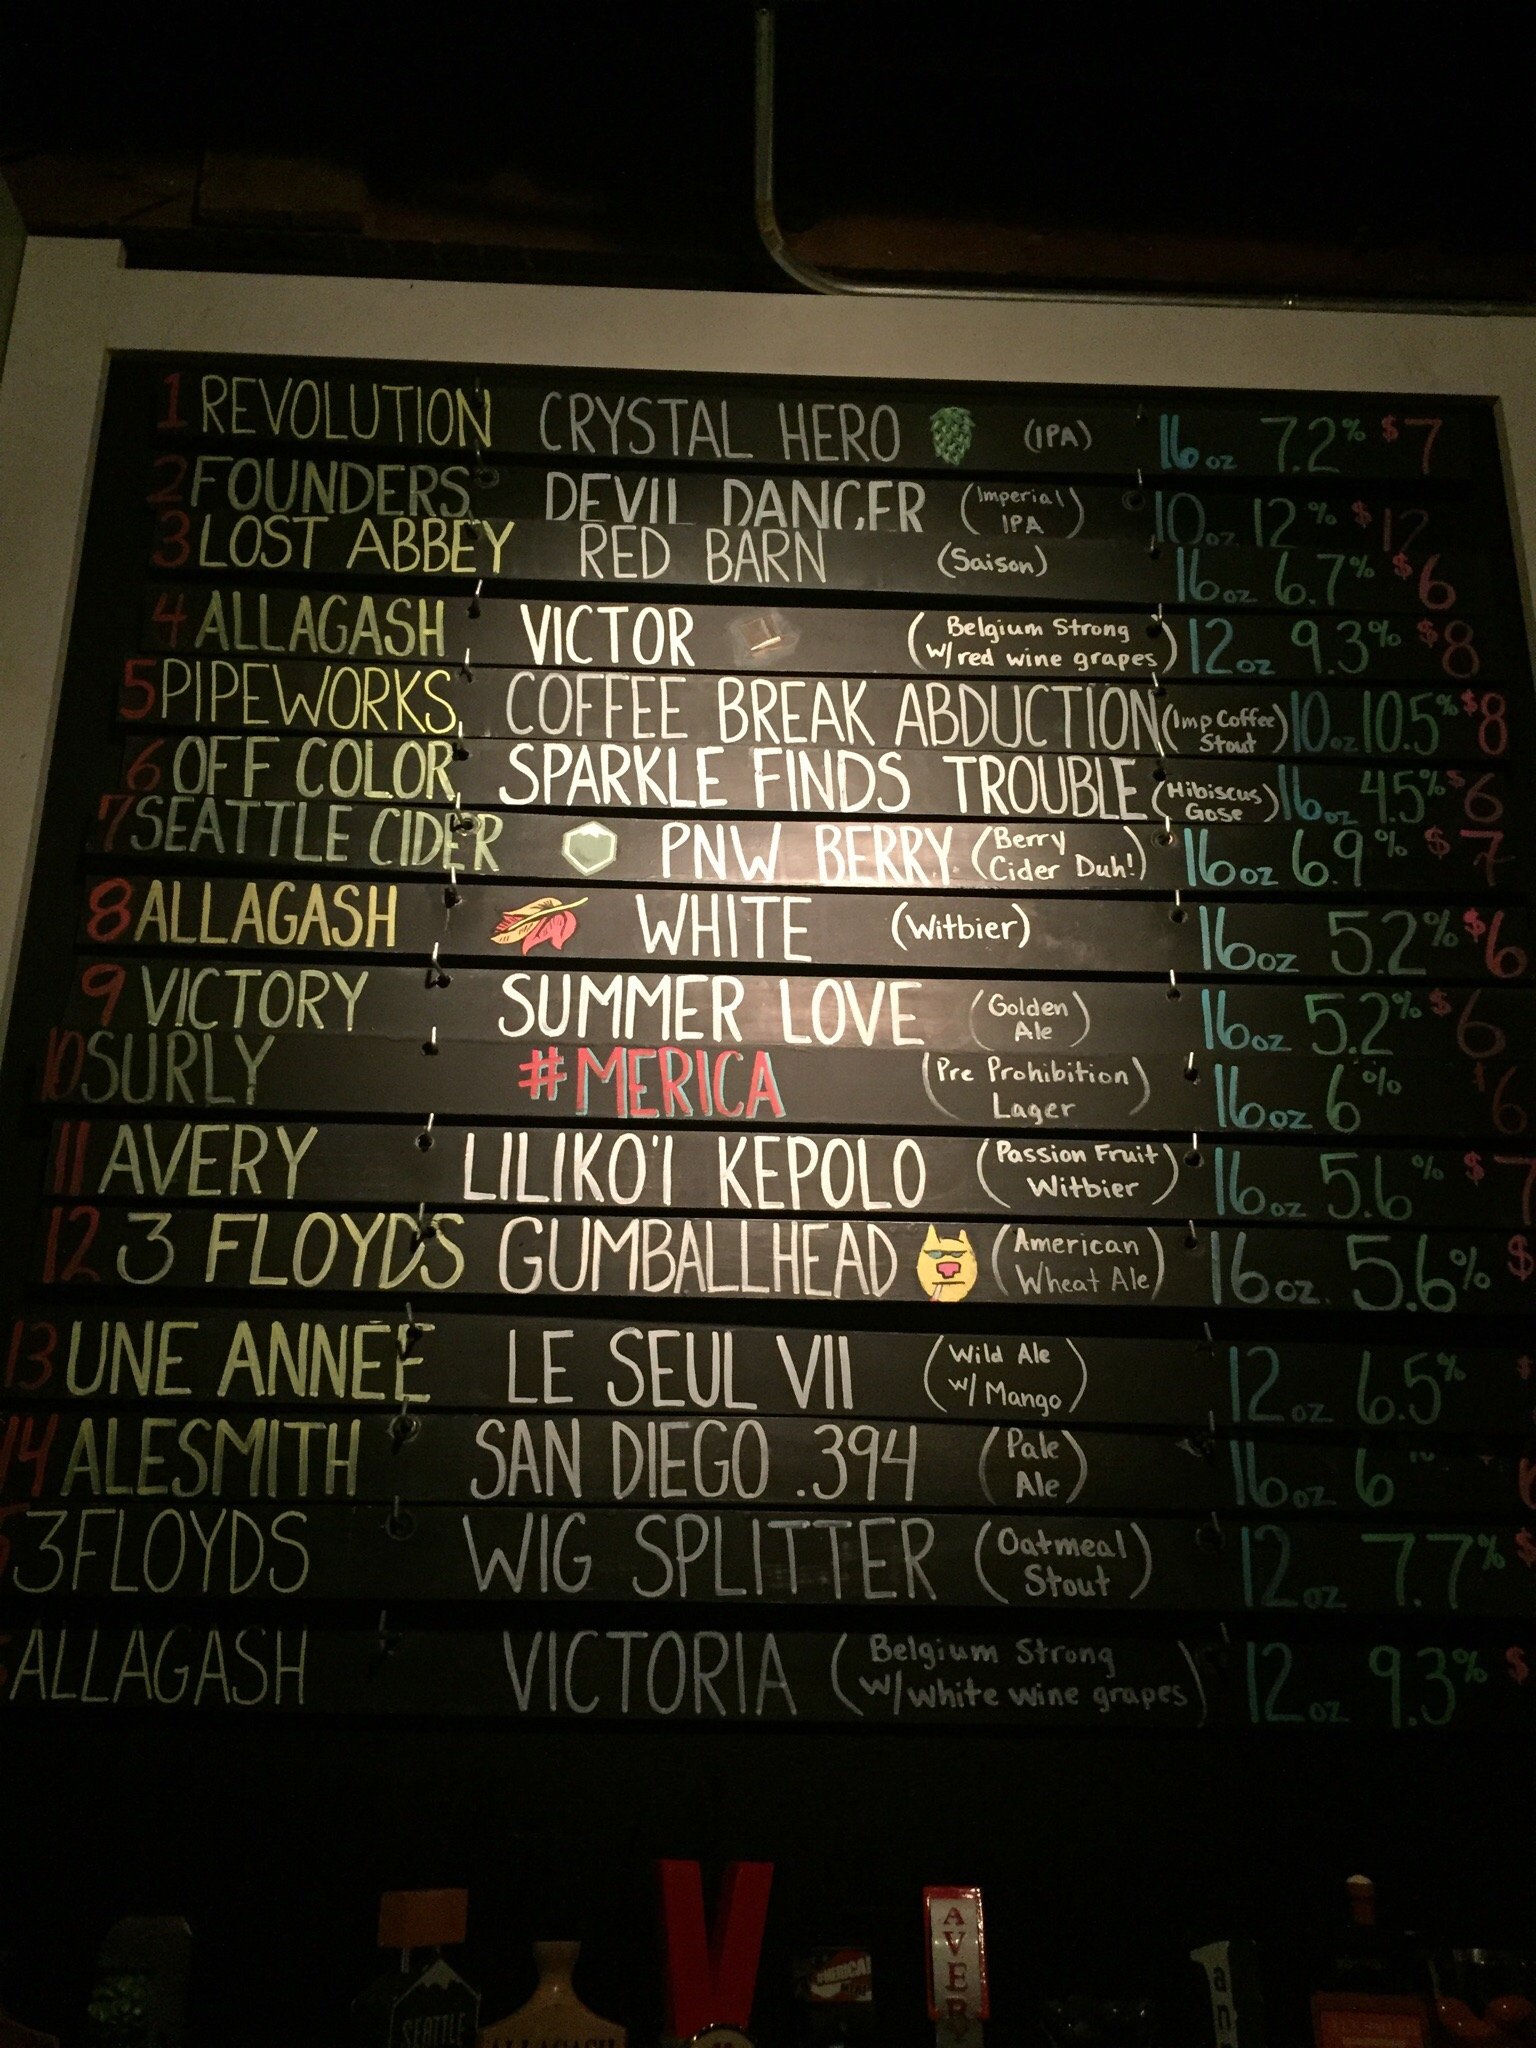 1 REVOLUTION CRYSTAL HERO (IPA) 16oz 7.2% $7
2 FOUNDERS DEVIL DANCER (Imperial IPA) 10oz 12% $12
3 LOST ABBEY RED BARN (Saison) 16oz 6.7% $6
4 ALLAGASH VICTOR (Belgium Strong w/red wine grapes) 12oz 9.3% $8
5 PIPEWORKS COFFEE BREAK ABDUCTION (Imp Coffee Stout) 10oz 10.5% $8
6 OFF COLOR SPARKLE FINDS TROUBLE (Hibiscus Gose) 16oz 4.5% $6
7 SEATTLE CIDER PNW BERRY (Berry Cider Duh!) 16oz 6.9% $7
8 ALLAGASH WHITE (Witbier) 16oz 5.2% $6
9 VICTORY SUMMER LOVE (Golden Ale) 16oz 5.2% $6
10 SURLY #MERICA (Pre Prohibition Lager) 16oz 6% $6
11 AVERY LILIKO'I KEPOLO (Passion Fruit Witbier) 16oz 5.6% $7
12 3 FLOYDS GUMBALLHEAD (American Wheat Ale) 16oz. 5.6% $
13 UNE ANNÉE LE SEUL VII (Wild Ale w/ Mango) 12oz 6.5%
14 ALESMITH SAN DIEGO .394 (Pale Ale) 16oz 6
3 FLOYDS WIG SPLITTER (Oatmeal Stout) 12oz 7.7% $
ALLAGASH VICTORIA (Belgium Strong w/white wine grapes) 12oz 9.3% $
V
AVERY
SEATTLE
ALLAGASH